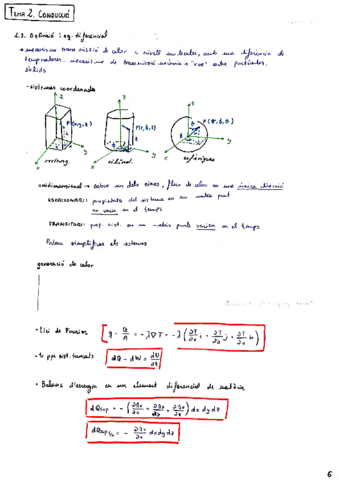 TEMA 2. CONDUCCIÓ
2.1. Definició i eq. diferencial
→ mecanisme transmissió de calor a nivell molecular, amb una diferència de
temperatures. mecanisme de transmissió única entre partícules.
sòlids
- Sistemes coordenades
z z z
P(x,y,z) P(r,θ,z) P(r,θ,φ)
y y y
x x x
rectang. cilíndr. esfèriques
unidimensional → sobre un dels eixos, flux de calor en una única direcció
ESTACIONARI: propietats del sistema en un mateix punt
no varia en el temps
TRANSITORI: prop. sist. en un mateix punt varien en el temps
Podem simplificar els sistemes
generació de calor
• Llei de Fourier q = Q/A = -λ∇T = -λ(∂T/∂x i + ∂T/∂y j + ∂T/∂z k)
• 1r ppi sist. tancats dQ - dW = dU/dt
• Balanç d'energia en un element diferencial de matèria
dQsup = -(∂qx/∂x + ∂qy/∂y + ∂qz/∂z) dx dy dz
dQsup/x = - ∂qx/∂x dx dy dz
6